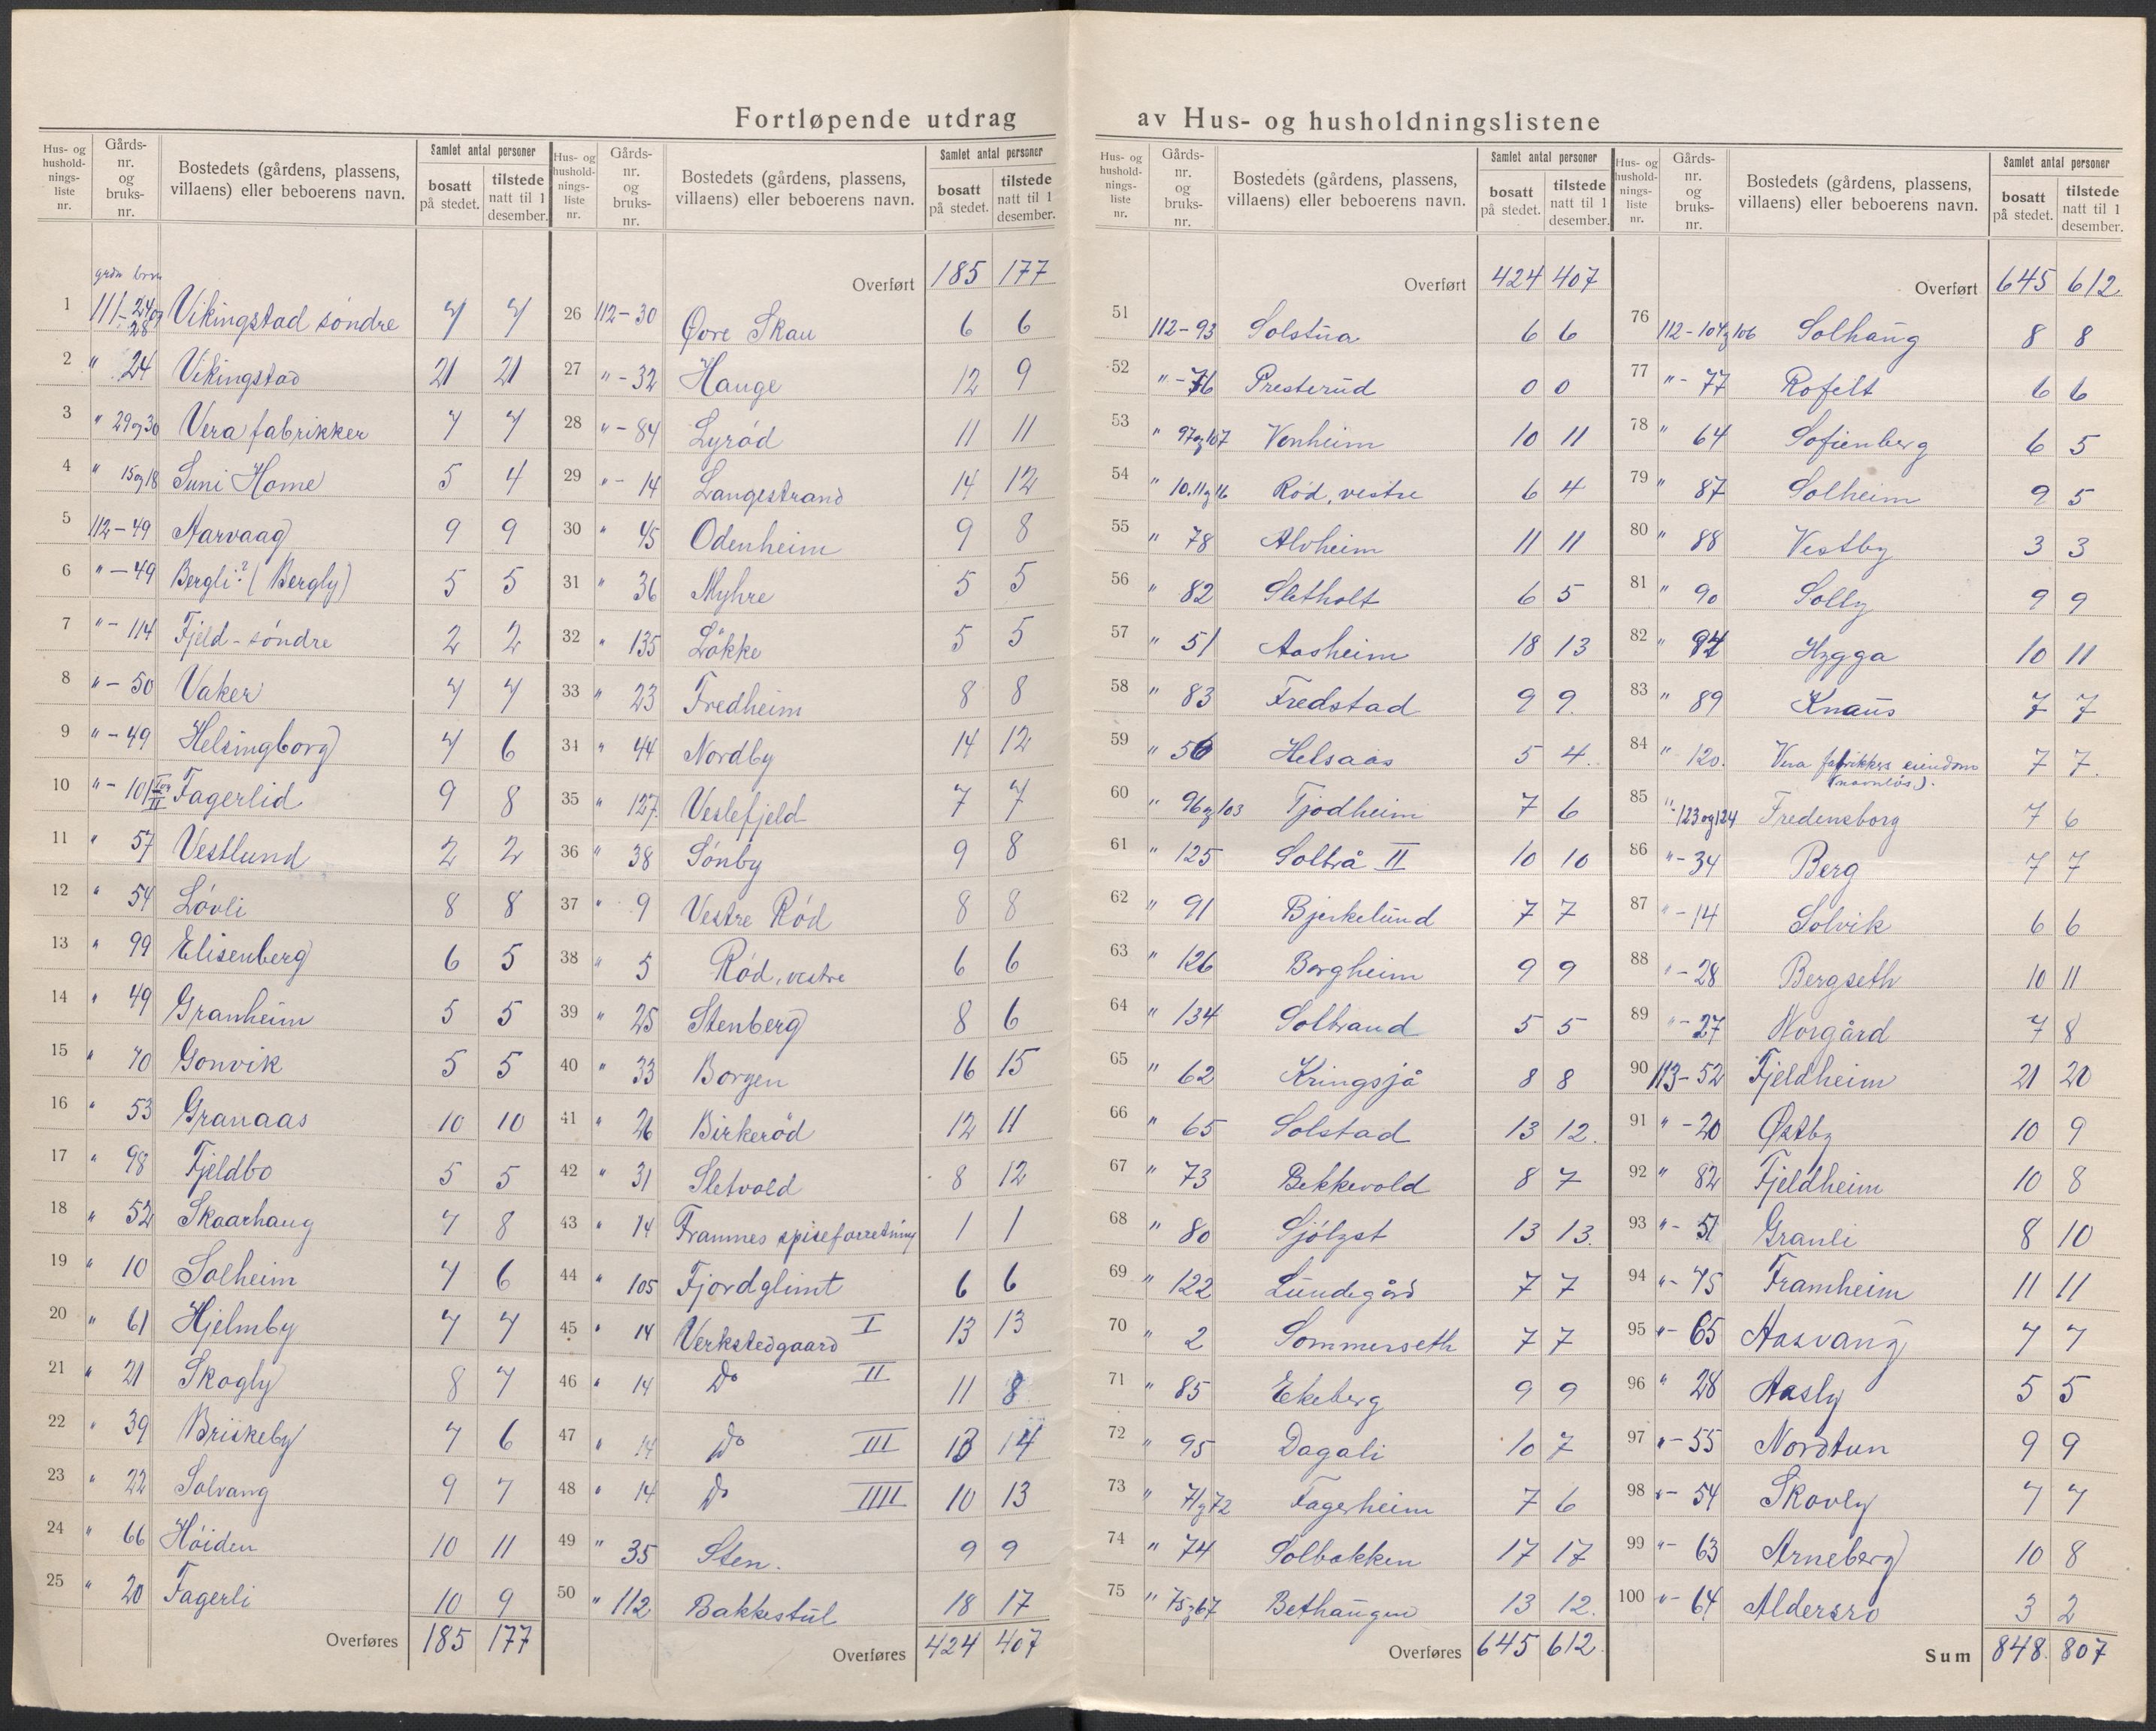 Fortløpende utdrag av Hus- og husholdningslistene
Hus- og husholdnings-liste nr. | Gårds-nr. og bruks-nr. | Bostedets (gårdens, plassens, villaens) eller beboerens navn. | Samlet antal personer | bosatt på stedet. | tilstede natt til 1 desember.
grdn brn
1 | 111-24 og 28 | Vikingstad söndre | 7 | 7
2 | " 24 | Vikingstad | 21 | 21
3 | " 29 og 30 | Vera fabrikker | 7 | 7
4 | " 15 og 18 | Suni Home | 5 | 4
5 | 112-49 | Aarvaag | 9 | 9
6 | "-49 | Bergli? (Bergly) | 5 | 5
7 | "-114 | Fjeld-söndre | 2 | 2
8 | "-50 | Vaker | 7 | 7
9 | "-49 | Helsingborg | 7 | 6
10 | "-101 I og II | Fagerlid | 9 | 8
11 | " 57 | Vestlund | 2 | 2
12 | " 54 | Lövli | 8 | 8
13 | " 99 | Elisenberg | 6 | 5
14 | " 49 | Granheim | 5 | 5
15 | " 70 | Gonvik | 5 | 5
16 | " 53 | Granaas | 10 | 10
17 | " 98 | Fjeldbo | 5 | 5
18 | " 52 | Skaarhaug | 7 | 8
19 | " 10 | Solheim | 7 | 6
20 | " 61 | Hjelmby | 7 | 7
21 | " 21 | Skogly | 8 | 7
22 | " 39 | Briskeby | 7 | 6
23 | " 22 | Solvang | 9 | 7
24 | " 66 | Höiden | 10 | 11
25 | " 20 | Fagerli | 10 | 9
Overføres | 185 | 177
Hus- og husholdnings-liste nr. | Gårds-nr. og bruks-nr. | Bostedets (gårdens, plassens, villaens) eller beboerens navn. | Samlet antal personer | bosatt på stedet. | tilstede natt til 1 desember.
Overført | 185 | 177
26 | 112-30 | Øvre Skau | 6 | 6
27 | "-32 | Hauge | 12 | 9
28 | "-84 | Lyröd | 11 | 11
29 | "-14 | Langestrand | 14 | 12
30 | " 45 | Odenheim | 9 | 8
31 | " 36 | Myhre | 5 | 5
32 | " 135 | Lökke | 5 | 5
33 | " 23 | Fredheim | 8 | 8
34 | " 44 | Nordby | 14 | 12
35 | " 127. | Veslefjeld | 7 | 7
36 | " 38 | Sönby | 9 | 8
37 | " 9 | Vestre Röd | 8 | 8
38 | " 5 | Röd, vestre | 6 | 6
39 | " 25 | Stenberg | 8 | 6
40 | " 33 | Borgen | 16 | 15
41 | " 26 | Birkeröd | 12 | 11
42 | " 31 | Sletvold | 8 | 12
43 | " 14 | Framnes spiseforretning | 1 | 1
44 | " 105 | Fjordglimt | 6 | 6
45 | " 14 | Verkstedgaard I | 13 | 13
46 | " 14 | Do II | 11 | 8
47 | " 14 | Do III | 13 | 14
48 | " 14 | Do IIII | 10 | 13
49 | " 35 | Sten. | 9 | 9
50 | " 112 | Bakkestul | 18 | 17
Overføres | 424 | 407
Hus- og husholdnings-liste nr. | Gårds-nr. og bruks-nr. | Bostedets (gårdens, plassens, villaens) eller beboerens navn. | Samlet antal personer | bosatt på stedet. | tilstede natt til 1 desember.
Overført | 424 | 407
51 | 112-93 | Solstua | 6 | 6
52 | "-76 | Presterud | 0 | 0
53 | " 97 og 107 | Vonheim | 10 | 11
54 | " 10.11 og 16 | Röd, vestre | 6 | 4
55 | " 78 | Alvheim | 11 | 11
56 | " 82 | Sletholt | 6 | 5
57 | " 51 | Aasheim | 18 | 13
58 | " 83 | Fredstad | 9 | 9
59 | " 56 | Helsaas | 5 | 4.
60 | " 96 og 103 | Tjodheim | 7 | 6
61 | " 125 | Soltrå II | 10 | 10
62 | " 91 | Bjerkelund | 7 | 7
63 | " 126 | Borgheim | 9 | 9
64 | " 134 | Soltrand | 5 | 5
65 | " 62 | Kringsjå | 8 | 8
66 | " 65 | Solstad | 13 | 12.
67 | " 73 | Bekkevold | 8 | 7
68 | " 80 | Sjölyst | 13 | 13.
69 | " 122 | Lundegård | 7 | 7
70 | " 2 | Sommerseth | 7 | 7
71 | " 85 | Ekeberg | 9 | 9
72 | " 95 | Dagali | 10 | 7
73 | " 71 og 72 | Fagerheim | 7 | 6
74 | " 74 | Solbakken | 17 | 17
75 | " 75 og 67 | Bethaugen | 13 | 12.
Overføres | 645 | 612.
Hus- og husholdnings-liste nr. | Gårds-nr. og bruks-nr. | Bostedets (gårdens, plassens, villaens) eller beboerens navn. | Samlet antal personer | bosatt på stedet. | tilstede natt til 1 desember.
Overført | 645 | 612
76 | 112-104 og 106 | Solhaug | 8 | 8
77 | "-77 | Rofelt | 6 | 6
78 | " 64 | Sofienberg | 6 | 5
79 | " 87 | Solheim | 9 | 5
80 | " 88 | Vestby | 3 | 3
81 | " 90 | Solly | 9 | 9
82 | " | Hygga | 10 | 11
83 | " 89 | Knaus | 7 | 7
84 | " 120. | Vera fabrikkers eiendom (navnlös). | 7 | 7.
85 | "-123 og 124 | Fredensborg | 7 | 6
86 | "-34 | Berg | 7 | 7
87 | "-14 | Solvik | 6 | 6
88 | "-28 | Bergseth | 10 | 11
89 | "-27 | Norgård | 7 | 8
90 | 113-52 | Fjeldheim | 21 | 20
91 | "-20 | Østby | 10 | 9
92 | " 82 | Fjeldheim | 10 | 8
93 | "-51 | Granli | 8 | 10
94 | "-75 | Framheim | 11 | 11
95 | "-65 | Aasvang | 7 | 7
96 | " 28 | Aasly | 5 | 5
97 | "-55 | Nordtun | 9 | 9
98 | "-54 | Skovly | 7 | 7
99 | "-63 | Arneberg | 10 | 8
100 | "-64 | Aldersro | 3 | 2
Sum | 848. | 807